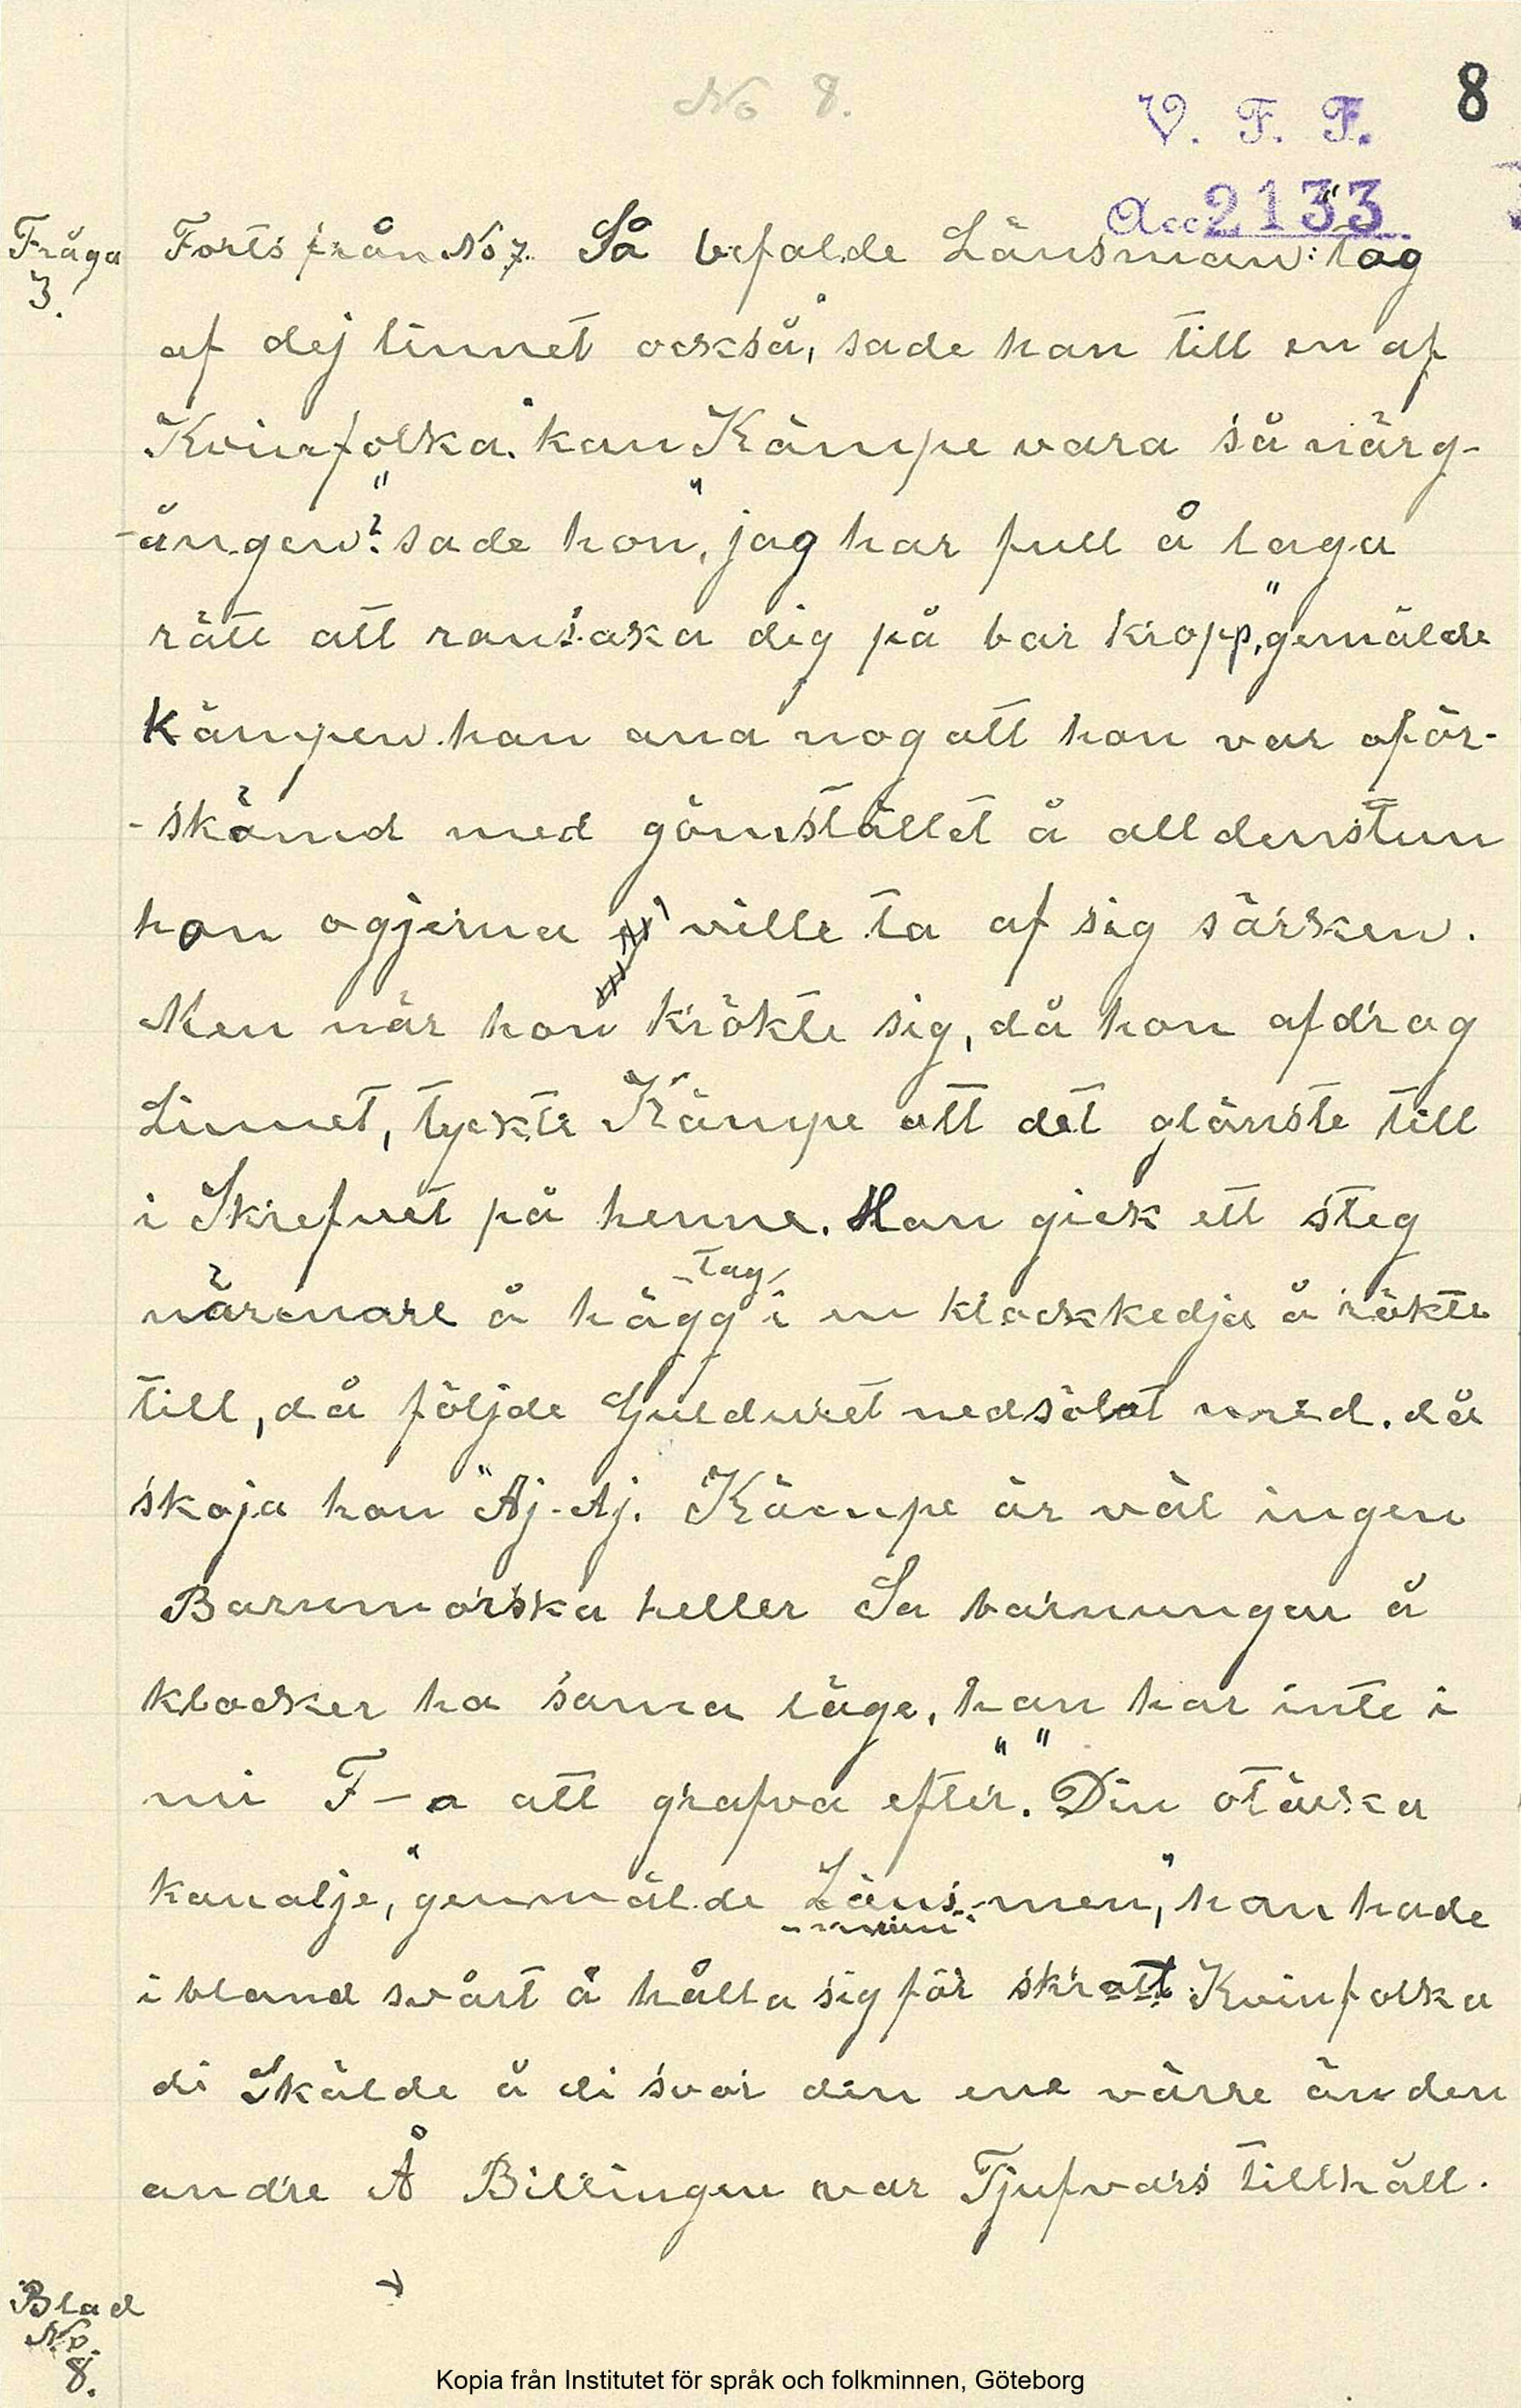 No 8.
8
V. F. F.
Acc 2133
Fråga
3.
Forts från No 7. Så befalde Länsman: "tag
af dej linnet också," sade han till en af
Kvinfolka. "kan Kämpe vara så närg-
-ången?" sade hon, "jag har full å laga
rätt att ransaka dig på bar kropp," gemälde
Kämpen. han ana nog att hon var oför-
-skämd med gömstället å alldenstun
hon ogjerna ville ta af sig särken.
Men när hon krökte sig, då hon afdrag
Linnet, tyckte Kämpe att det glänste till
i Skrefvet på henne. Han gick ett steg
närenare å högg tag i en klockkedja å rökte
till, då följde Gulduret nedsölat med. då
skoja hon "Aj-Aj. Kämpe är väl ingen
Barnmorska heller Sa barnungar å
klocker ha sama läge, han har inte i
mi F–a att grafva efter." "Din otäcka
kanalje," genmälde Läns-men," han hade
ibland svårt å hålla sig för skratt. Kvinfolka
di Skälde å di svor den ene värre än den
andre Å Billingen var Tjufvars tillhåll.
Blad
No.
8.
Kopia från Institutet för språk och folkminnen, Göteborg